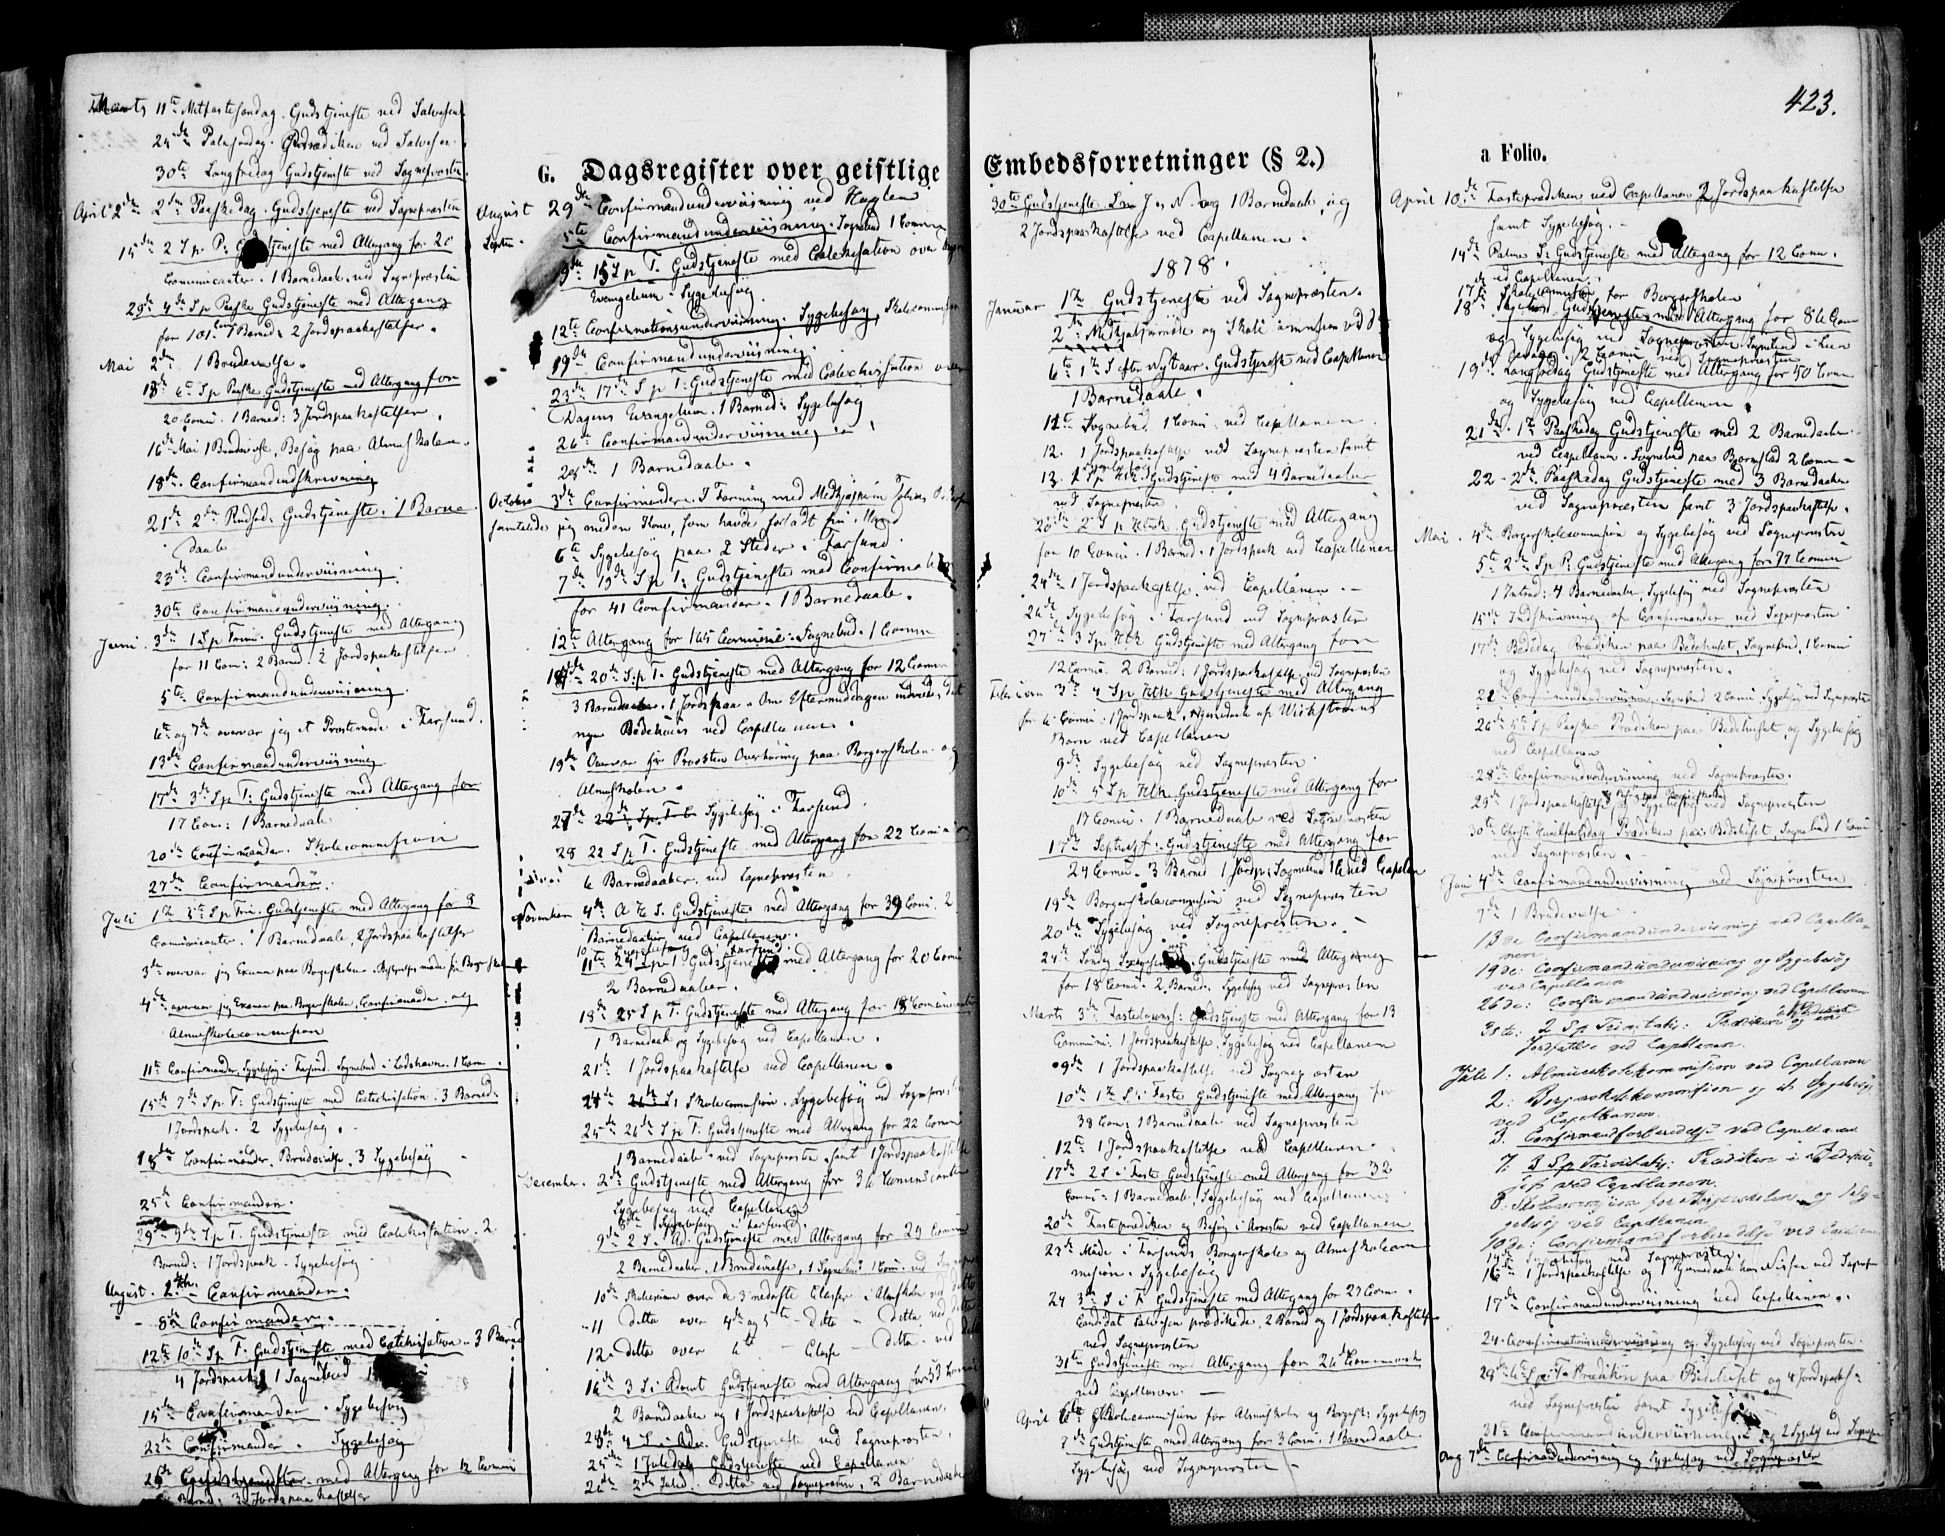 423.
G. Dagsregister over geistlige Embedsforretninger (§ 2.)
a Folio.
Marts 11te Midfastesøndag. Gudstjeneste ved Salvesen
24de Palmesøndag. Prædiken ved Salvesen.
30te Langfredag Gudstjeneste ved Sognepræsten.
April 2den 2den Paaskedag. Gudstjeneste ved Sognepræsten
15de 2 S. p. P. Gudstjeneste med Altergang for 20
Communicanter. 1 Barnedaab. ved Sognepræsten
29de 4de S p Paaske Gudstjeneste med Altergang
for 101 Com. 1 Barned: 2 Jordspaakastelser.
Mai 2den 1 Brudevielse.
13de 6te S p Paaske. Gudstjeneste med Altergang for
20 Comu. 1 Barned: 3 Jordspaakastelser.
16de Mai 1 Brudevielse, Besøg paa Almueskolen.
18de Confirmandindskrivning
21de 2den Pindsed. Gudstjeneste. 1 Barne
daab
23de Confirmandunderviisning
30te Confirmandunderviisning.
Juni. 3de 1 S p Trin. Gudstjeneste med Altergang
for 11 Com: 2 Barned. 2 Jordspaakastelser
5te Confirmandunderviisning.
6te og 7de overvar jeg et Præstemøde i Farsund.
13de Confirmandunderviisning
17de 3de S p T: Gudstjeneste med Altergang for
17 Com: 1 Barnedaab
20de Confirmander. Skolecommission
27de Confirmander.
Juli 1ste 5te S p Trin. Gudstjeneste med Altergang for 8
Comunicanter. 1 Barnedaab, 2 Jordspaakastelser
3de overvar jeg Examen paa Borgerskolen.
4de overvar jeg Examen paa Borgerskolen, Confirmander. og
Almueskolecommission
11te Confirmander, Sygebesøg i Farsund. Sognebud i Lodshavn. 1 Com.
15de 7de S p T: Gudstjeneste med Catechisation. 3 Barned:
1 Jordspaak. 2 Sygebesøg.
18de Confirmander. Brudevielse. 3 Sygebesøg
25de Confirmander.
29de 9de S p T. Gudstjeneste med Catechisation. 2
Barned: 1 Jordspaak. Sygebesøg
August. 2den Confirmander.
8de Confirmander.
12te 10de S p T: Gudstjeneste med Catechisation. 3 Barned
4 Jordspaak. 1 Sognebud
15de Confirmander. Sygebesøg
22de Confirmander. Sygebesøg
26de Gudstjeneste med Altergang for 12 Comuni
Barned: 3 Jordspaakastelser
August 29de Confirmandunderviisning ved
Septbr. 5te Confirmandunderviisning. Sognebud 1 Comun
9de 15 S p T. Gudstjeneste med Catechisation over
Evangelium. Sygebesøg.
12te Confirmationsunderviisning. Sygebesøg, Skolecommission
19de Confirmandunderviisning.
23de 17de S p T: Gudstjeneste med Catechisation over
Dagens Evangelium. 1 Barned: Sygebesøg
26de Confirmandunderviisning
28de 1 Barnedaab.
October 3de Confirmander.
samtalede jeg med en Kone, som havde forladt sin Mand
6te Sygebesøg paa 2 Steder i Farsund.
7de 19de S p T: Gudstjeneste med Confirmation
for 41 Confirmander. 1 Barnedaab.
12te Altergang for 165 Comuni. Sognebud. 1 Comun
14de 20de S. p T. Gudstjeneste med Altergang for 12 Comun
3 Barnedaaber. 1 Jordspaa. Om Eftermiddagen indviedes det
nye Bedehuus ved Capellanen.
19de Overvar Hr Provsten Overhøring paa Borgerskolen og
Almueskolen.
27de Sygebesøg i Farsund.
28 22 S p T. Gudstjeneste med Altergang for 22 Comuni
6 Barnedaaber. ved Sognepræsten.
November 4de A H S. Gudstjeneste med Altergang for 39 Comu. 2
Barnedaaber ved Capellanen.
10 Sygebesøg i Farsund
11te 24 S p T Gudstjeneste med Altergang for 20 Comu
2 Barnedaaber.
18de 25 S p T. Gudstjeneste med Altergang for 18 Comunicanter
1 Barnedaab og Sygebesøg ved Capellanen.
21de 1 Jordspaakastelse ved Capellanen.
24de Skolecommission. Sygebesøg ved Sognepræst
25de 26de S p T: Gudstjeneste med Altergang for 22 Comuni
1 Barnedaab ved Sognepræsten samt 1 Jordspaakastelse
December. 2den Gudstjeneste med Altergang for 36 Comunicanter
Sygebesøg ved Capellanen
8de Sygebesøg i Farsund.
9de 2 S. i Ad. Gudstjeneste med Altergang for 29 Comuni
2 Barnedaaber. 1 Brudevielse, 1 Sognebud 1 Comu: ved Sognepr
10de Skoleexamen over de 3 nederste Classer i Almueskolen ved ditto
11 Ditto over 4de og 5te Ditto Ditto ved ditto
12. Ditto over 6te Classe Ditto ved ditto
16de 3 S i Advent Gudstjeneste med Altergang for 59 Comuni
2 Barnedaaber og 1 Jordspaakastelse ved Capellanen.
23de 4 S. i Adv. Gudstjeneste ved Sognepræsten.
25de 1 Juledag Gudstjeneste ved Capellanen
26de 2den Juled. ditto ved Sognepræsten. 2 Barnedaaber
30te Gudstjeneste og 1 Barnedaab, og
2 Jordspaakastelse ved Capellanen.
1878.
Januar 1ste Gudstjeneste ved Sognepræsten.
6te 1ste S efter Nytaar. Gudstjeneste ved Capellanen
1 Barnedaab.
11te Sognebud. 1 Comu: ved Capellanen.
12. 1 Jordspaakastelse ved Sognepræsten samt
13. 1 S p HtK Gudstjeneste med 4 Barnedaaber
ved Sognepræsten.
20de 2 S p HtK Gudstjeneste med Altergang
for 10 Comu. 1 Barned. 1 Jordspaak ved Capellanen
24de 1 Jordspaakastelse ved Capellanen.
26de Sygebesøg i Farsund ved Sognepræsten
27de 3 S p HtK Gudstjeneste med Altergang for
12 Comu. 2 Barned: 1 Jordspaakastelse ved Sognepræsten
Februar 3de 4 S p HtK Gudstjeneste med Altergang
for 6 Comu: 1 Jordspaak. Hjemmedaab af Wickstrøms
Barn ved Capellanen
9de Sygebesøg ved Sognepræsten.
10de 5 S p HtK. Gudstjeneste med Altergang for
17 Comu. 1 Barnedaab ved Sognepræsten
17de Septuag: Gudstjeneste med Altergang for
24 Comu. 3 Barned 1 Jordsp: Sognebud ved Capellan
19de Borgerskolecommission ved Sognepræsten
20de Sygebesøg ved Sognepræsten.
24de Søndag Sexagesima. Gudstjeneste med Altergang
for 18 Comu. 2 Barned. Sygebesøg ved Sognepræsten
Marts 3de Fastelavns: Gudstjeneste med Altergang for 13
Communi: 1 Jordspaakastelse. Sygebesøg ved Capellanen
9de 1 Jordspaakastelse ved Sognepræsten
10de 1ste S. i Faste Gudstjeneste med Altergang for
38 Com: 1 Barnedaab ved Sognepræsten
12te 1 Jordspaakastelse ved Capellanen.
17de 2 S. i Faste Gudstjeneste med Altergang for 32
Comu: 1 Barnedaab, Sygebesøg ved Capellanen
20de Fasteprædiken og Besøg i Arresten ved Capellanen.
23de Møde i Farsunds Borgerskole og Almueskolecom
mission. Sygebesøg
24 3de S. i F. Gudstjeneste med Altergang for 27 Com.
Candidat Salvesen prædikede, 2 Barned og 1 Jordspaakastelse
ved Sognepræsten
31te Gudstjeneste med Altergang for 26 Communi
ved Capellanen.
April 6te Skolecommission for Almueskolen og Borgersk: Sygebesøg
7de Gudstjeneste med Altergang for 3 Comu, 1 Barnedaab
Sygebesøg ved Sognepræsten
April 10de Fasteprædiken ved Capellanen 2 Jordspaakastelse
samt Sygebesøg.
14de Palme S: Gudstjeneste med Altergang for 12 Comu.
ved Capellanen
17de Skolecommission for Borgerskolen
18de Gudstjeneste med Altergang for 86 Com
og Sygebesøg ved Sognepræsten. Sognebud
19de Langfredag Gudstjeneste med Altergang for 50 Comu
og Sygebesøg ved Capellanen.
21de 1ste Paaskedag Gudstjeneste med 2 Barnedaaber
ved Capellanen. Sognebud paa Bjørnstad 2 Comu
22 2den Paaskedag Gudstjeneste med 3 Barnedaaber
ved Sognepræsten samt 3 Jordspaakastelse.
Mai. 4de Borgerskolecommission og Sygebesøg ved Sognepræsten
5te 2den S p P: Gudstjeneste med Altergang for 97 Comuni
4 Barnedaaber, Sygebesøg ved Sognepræsten
15de Indskrivning af Confirmander ved Sognepræsten.
17de Bededag Prædiken paa Bedehuset, Sognebud, 1 Comuni
og Sygebesøg ved Sognepræsten.
22de Confirmandunderviisning, Sognebud 2 Comu Sygebesøg ved Sognepræsten
26de 5te S p Paaske Prædiken paa Bedehuset og Sygebesøg
ved Capellanen
28de Confirmandunderviisning ved Sognepræsten.
29de 1 Jordspaakastelse og Sygebesøg ved Sognepræsten
30te Christi Himmelfartsdag Prædiken paa Bedehuset, Sognebud 1 Comu
ved Sognepræsten.
Juni 4de Confirmandunderviisning ved Sognepræsten
7de 1 Brudevielse.
13de Confirmandundervisning ved Capella-
nen.
19de: Confirmandundervisning og Sygebesøg
ved Capellanen
26de: Confirmandundervisning ved Capellanen
30te: 2 S p Trinitatis: Prædiken
Jordfæstelse ved Capellanen.
Juli 1: Almueskolekommission ved Capellanen
2: Borgerskolekommission og Sygebesøg
ved Capellanen.
3. Confirmandforberedelse ved Capellanen.
7: 3 S p Trinitatis: Prædiken i Bedehu-
set ved Capellanen.
8: Skolekommission for Borgerskolen og Sy-
gebesøg ved Capellanen
10de: Confirmandforberedelse ved Capellanen
14de Sygebesøg ved Sognepræsten.
16de 1 Jordspaakastelse og 1 Barnedaab hos Nissen ved Sognepr
17de Confirmandunderviisning ved Capellanen.
24. Confirmationsunderviisning og Sygebesøg ved Sognepræsten.
28de 6te S. p. T. Prædiken paa Bedehuset og 4 Jordspaak
ved Sognepræsten samt Sygebesøg
31te Confirmandunderviisning og 2 Sygebesøg ved Sognepr
Aug 7de Confirmandunderviisning og Sygebesøg ved Sognepræsten